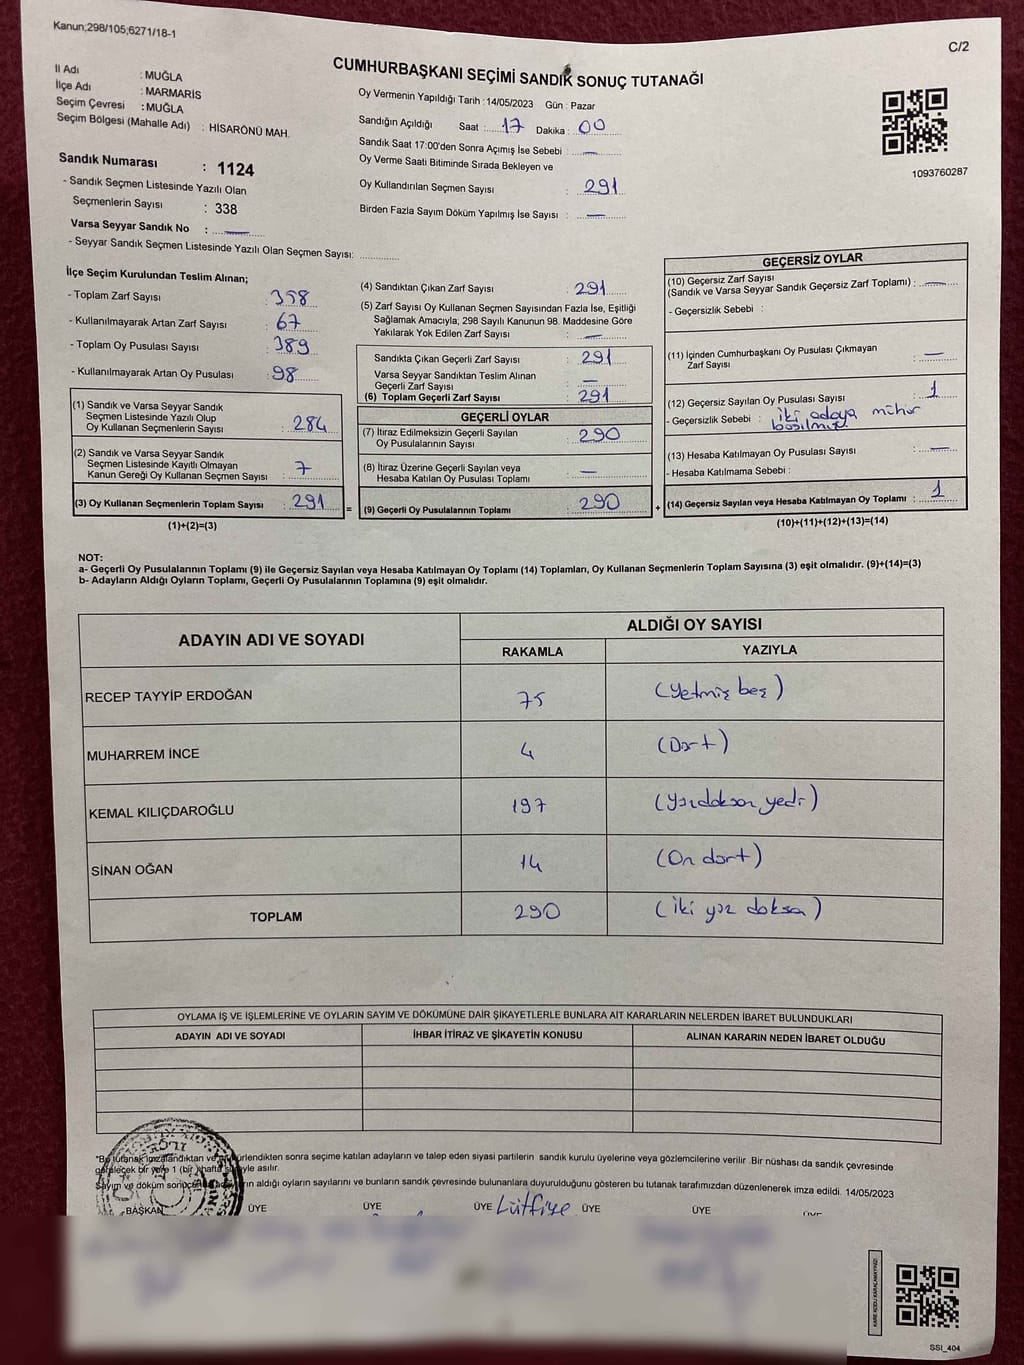 Kanun;298/105;6271/18-1
C/2
CUMHURBAŞKANI SEÇİMİ SANDIK SONUÇ TUTANAĞI
İl Adı : MUĞLA
İlçe Adı : MARMARİS
Seçim Çevresi : MUĞLA
Seçim Bölgesi (Mahalle Adı) : HİSARÖNÜ MAH.
Oy Vermenin Yapıldığı Tarih : 14/05/2023 Gün : Pazar
Sandığın Açıldığı Saat : 17 Dakika : 00
Sandık Saat 17:00'den Sonra Açımış İse Sebebi : —
Oy Verme Saati Bitiminde Sırada Bekleyen ve
Oy Kullandırılan Seçmen Sayısı : 291
Birden Fazla Sayım Döküm Yapılmış İse Sayısı : —
1093760287
Sandık Numarası : 1124
- Sandık Seçmen Listesinde Yazılı Olan
Seçmenlerin Sayısı : 338
Varsa Seyyar Sandık No : —
- Seyyar Sandık Seçmen Listesinde Yazılı Olan Seçmen Sayısı: ............
İlçe Seçim Kurulundan Teslim Alınan;
- Toplam Zarf Sayısı : 358
- Kullanılmayarak Artan Zarf Sayısı : 67
- Toplam Oy Pusulası Sayısı : 389
- Kullanılmayarak Artan Oy Pusulası : 98
(1) Sandık ve Varsa Seyyar Sandık
Seçmen Listesinde Yazılı Olup
Oy Kullanan Seçmenlerin Sayısı : 284
(2) Sandık ve Varsa Seyyar Sandık
Seçmen Listesinde Kayıtlı Olmayan
Kanun Gereği Oy Kullanan Seçmen Sayısı : 7
(3) Oy Kullanan Seçmenlerin Toplam Sayısı : 291
(1)+(2)=(3)
(4) Sandıktan Çıkan Zarf Sayısı : 291
(5) Zarf Sayısı Oy Kullanan Seçmen Sayısından Fazla İse, Eşitliği
Sağlamak Amacıyla; 298 Sayılı Kanunun 98. Maddesine Göre
Yakılarak Yok Edilen Zarf Sayısı : —
Sandıkta Çıkan Geçerli Zarf Sayısı : 291
Varsa Seyyar Sandıktan Teslim Alınan
Geçerli Zarf Sayısı : —
(6) Toplam Geçerli Zarf Sayısı : 291
GEÇERLİ OYLAR
(7) İtiraz Edilmeksizin Geçerli Sayılan
Oy Pusulalarının Sayısı : 290
(8) İtiraz Üzerine Geçerli Sayılan veya
Hesaba Katılan Oy Pusulası Toplamı : —
= (9) Geçerli Oy Pusulalarının Toplamı : 290
GEÇERSİZ OYLAR
(10) Geçersiz Zarf Sayısı
(Sandık ve Varsa Seyyar Sandık Geçersiz Zarf Toplamı) : —
- Geçersizlik Sebebi :
(11) İçinden Cumhurbaşkanı Oy Pusulası Çıkmayan
Zarf Sayısı : —
(12) Geçersiz Sayılan Oy Pusulası Sayısı : 1
- Geçersizlik Sebebi : iki adaya mühür
basılmış
(13) Hesaba Katılmayan Oy Pusulası Sayısı : —
- Hesaba Katılmama Sebebi :
+ (14) Geçersiz Sayılan veya Hesaba Katılmayan Oy Toplamı : 1
(10)+(11)+(12)+(13)=(14)
NOT:
a- Geçerli Oy Pusulalarının Toplamı (9) ile Geçersiz Sayılan veya Hesaba Katılmayan Oy Toplamı (14) Toplamları, Oy Kullanan Seçmenlerin Toplam Sayısına (3) eşit olmalıdır. (9)+(14)=(3)
b- Adayların Aldığı Oyların Toplamı, Geçerli Oy Pusulalarının Toplamına (9) eşit olmalıdır.
ADAYIN ADI VE SOYADI ALDIĞI OY SAYISI
RAKAMLA YAZIYLA
RECEP TAYYİP ERDOĞAN 75 (Yetmiş beş)
MUHARREM İNCE 4 (Dört)
KEMAL KILIÇDAROĞLU 197 (Yüzdoksan yedi)
SİNAN OĞAN 14 (On dört)
TOPLAM 290 (iki yüz doksa)
OYLAMA İŞ VE İŞLEMLERİNE VE OYLARIN SAYIM VE DÖKÜMÜNE DAİR ŞİKAYETLERLE BUNLARA AİT KARARLARIN NELERDEN İBARET BULUNDUKLARI
ADAYIN ADI VE SOYADI İHBAR İTİRAZ VE ŞİKAYETİN KONUSU ALINAN KARARIN NEDEN İBARET OLDUĞU
"Bu tutanak imzalandıktan ve mühürlendikten sonra seçime katılan adayların ve talep eden siyasi partilerin sandık kurulu üyelerine veya gözlemcilerine verilir .Bir nüshası da sandık çevresinde
görülecek bir yere 1 (bir) hafta süreyle asılır.
Sayım ve döküm aldığı oyların sayılarını ve bunların sandık çevresinde bulunanlara duyurulduğunu gösteren bu tutanak tarafımızdan düzenlenerek imza edildi. 14/05/2023
BAŞKAN ÜYE ÜYE ÜYE Lütfiye ÜYE ÜYE
SSİ_404